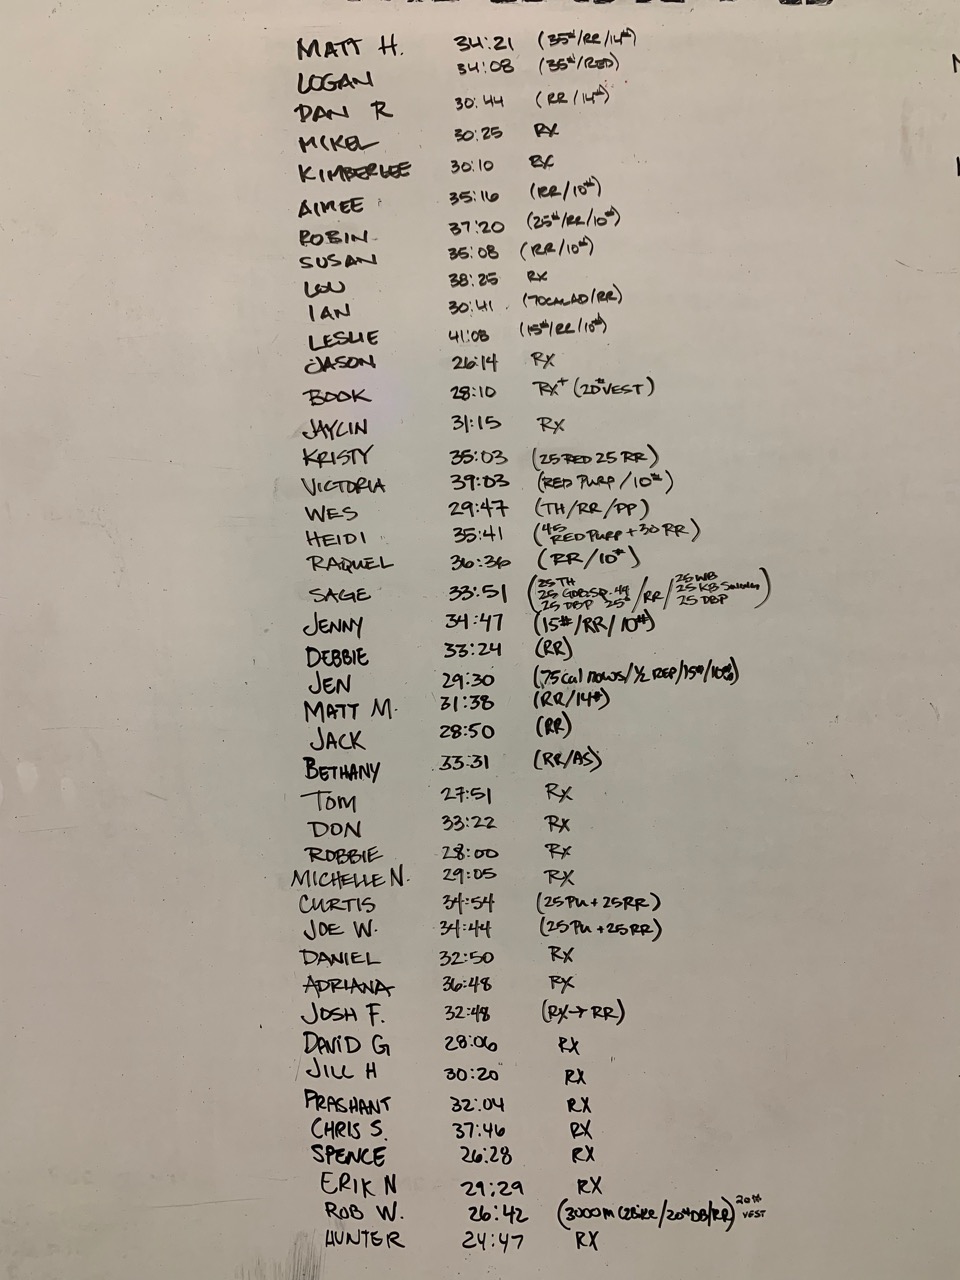 MATT H. 34:21 (35#/RR/14#)
LOGAN 34:08 (35#/RED)
DAN R 30:44 (RR/14#)
MIKEL 30:25 RX
KIMBERLEE 30:10 RX
AIMEE 35:16 (RR/10#)
ROBIN 37:20 (25#/RR/10#)
SUSAN 35:08 (RR/10#)
LOU 38:25 RX
IAN 30:41 (70CAL AD/RR)
LESLIE 41:08 (15#/RR/10#)
JASON 26:14 RX
BOOK 28:10 RX+ (20# VEST)
JAYLIN 31:15 RX
KRISTY 35:03 (25 RED 25 RR)
VICTORIA 39:03 (RED PURP/10#)
WES 29:47 (TH/RR/PP)
HEIDI 35:41 (45 RED PURP + 30 RR)
RAQUEL 36:36 (RR/10#)
SAGE 33:51 (25 TH 25 GOB.SQ. 44 25 DBP 25#/RR/25 WB 25 KB Swings 25 DBP)
JENNY 34:47 (15#/RR/10#)
DEBBIE 33:24 (RR)
JEN 29:30 (75 cal rows/1/2 REP/15#/10#)
MATT M. 31:38 (RR/14#)
JACK 28:50 (RR)
BETHANY 33:31 (RR/AS)
TOM 27:51 RX
DON 33:22 RX
ROBBIE 28:00 RX
MICHELLE N. 29:05 RX
CURTIS 34:54 (25 PU + 25 RR)
JOE W. 34:44 (25 PU + 25 RR)
DANIEL 32:50 RX
ADRIANA 36:48 RX
JOSH F. 32:48 (RX→RR)
DAVID G 28:06 RX
JILL H 30:20 RX
PRASHANT 32:04 RX
CHRIS S. 37:46 RX
SPENCE 26:28 RX
ERIK N 29:29 RX
ROB W. 26:42 (3000m Bike/20# DB/RR) 20# VEST
HUNTER 24:47 RX